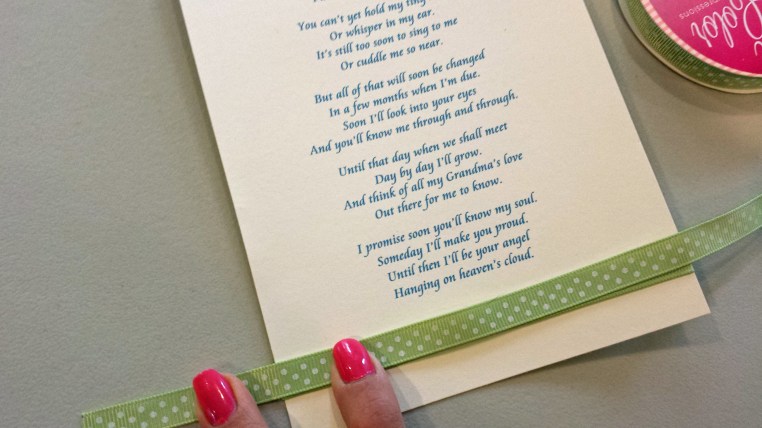 You can't yet hold my tiny
Or whisper in my ear.
It's still too soon to sing to me
Or cuddle me so near.
But all of that will soon be changed
In a few months when I'm due.
Soon I'll look into your eyes
And you'll know me through and through.
Until that day when we shall meet
Day by day I'll grow.
And think of all my Grandma's love
Out there for me to know.
I promise soon you'll know my soul.
Someday I'll make you proud.
Until then I'll be your angel
Hanging on heaven's cloud.
Color